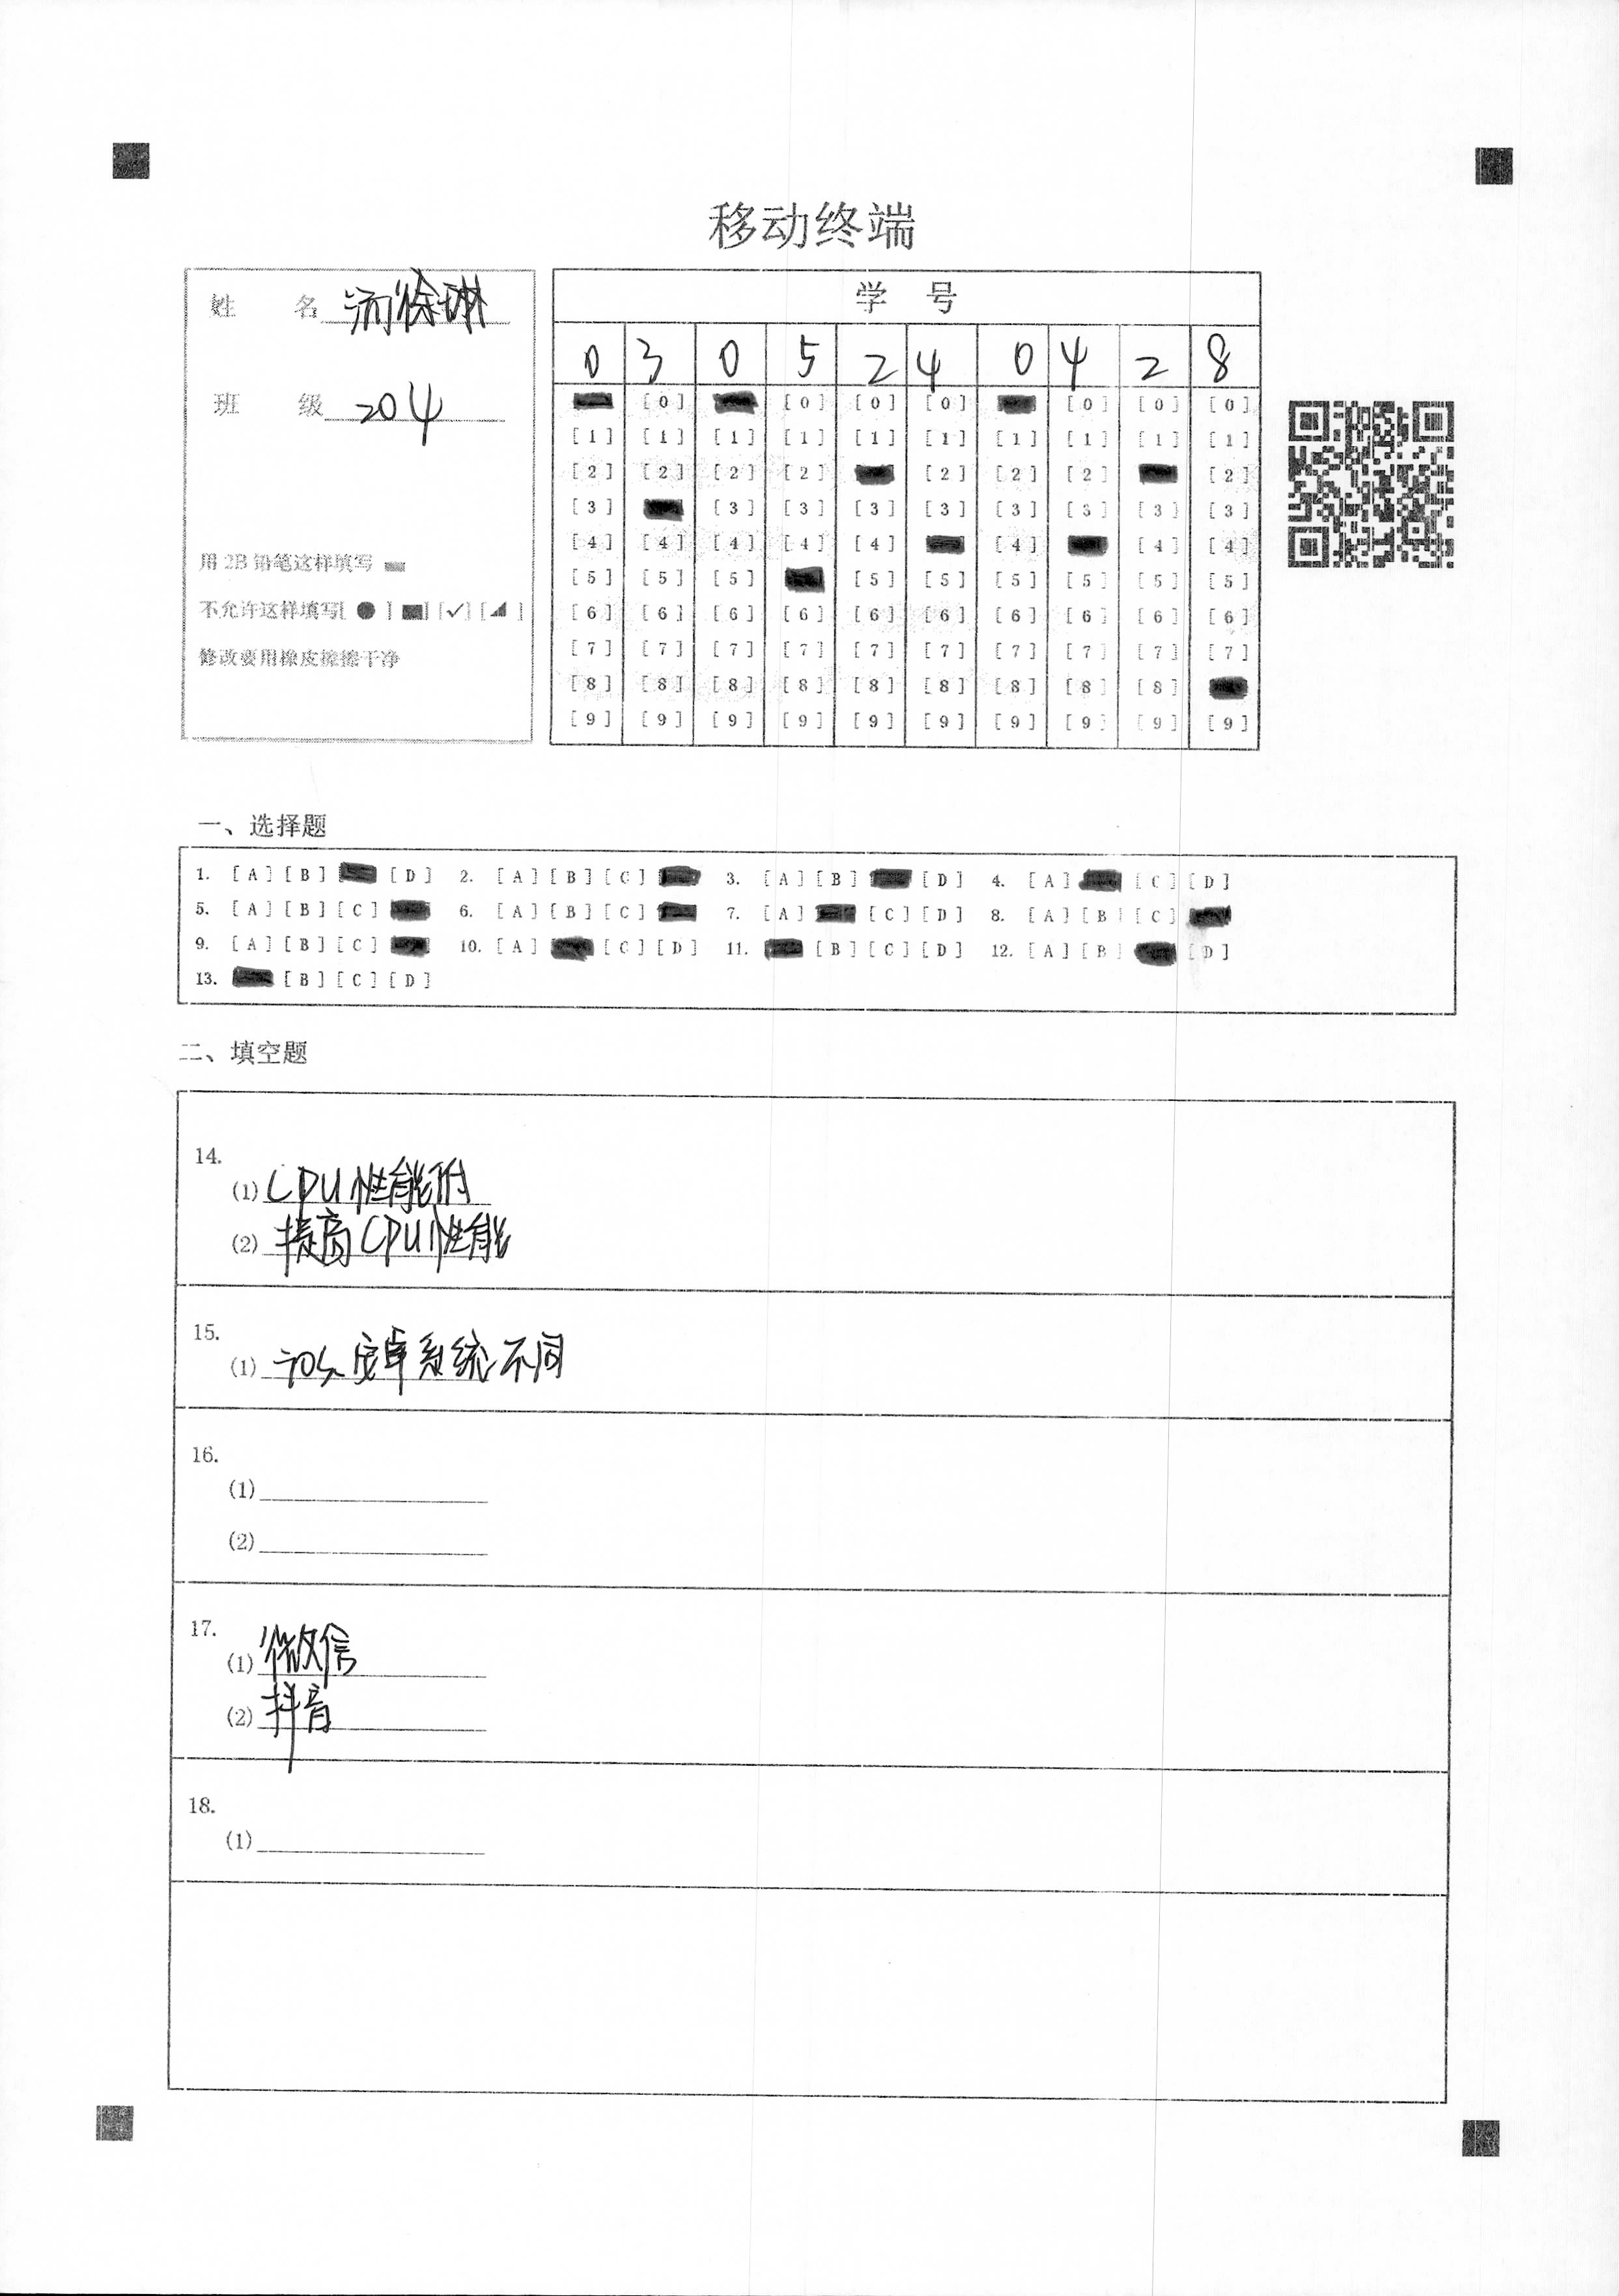 移动终端
姓 名
班 级 204
用 2B 铅笔这样填写
不允许这样填写[ ● ] [■] [✓] [◢ ]
修改要用橡皮擦擦干净
学 号
0 3 0 5 2 4 0 4 2 8
[0] [0] [0] [0] [0] [0] [0]
[1] [1] [1] [1] [1] [1] [1] [1] [1] [1]
[2] [2] [2] [2] [2] [2] [2] [2]
[3] [3] [3] [3] [3] [3] [3] [3] [3]
[4] [4] [4] [4] [4] [4] [4] [4]
[5] [5] [5] [5] [5] [5] [5] [5] [5]
[6] [6] [6] [6] [6] [6] [6] [6] [6] [6]
[7] [7] [7] [7] [7] [7] [7] [7] [7] [7]
[8] [8] [8] [8] [8] [8] [8] [8] [8]
[9] [9] [9] [9] [9] [9] [9] [9] [9] [9]
一、选择题
1. [A] [B] [D] 2. [A] [B] [C] 3. [A] [B] [D] 4. [A] [C] [D]
5. [A] [B] [C] 6. [A] [B] [C] 7. [A] [C] [D] 8. [A] [B] [C]
9. [A] [B] [C] 10. [A] [C] [D] 11. [B] [C] [D] 12. [A] [B] [D]
13. [B] [C] [D]
二、填空题
14.
(1) CPU性能
(2) 提高CPU性能
15.
(1) 安卓系统不同
16.
(1)
(2)
17.
(1) 微信
(2) 抖音
18.
(1)